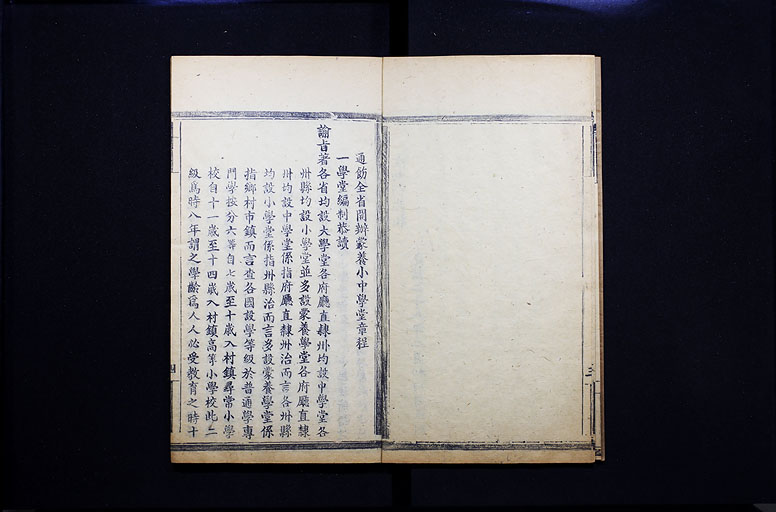 通飭全省開辦蒙養小中學堂章程
一學堂編制恭讀
諭旨著各省均設大學堂各府廳直隸州均設中學堂各
州縣均設小學堂並多設蒙養學堂各府廳直隸
州均設中學堂係指府廳直隸州治而言各州縣
均設小學堂係指州縣治而言多設蒙養學堂係
指鄉村市鎮而言查各國設學等級於普通學專
門學按分六等自七歲至十歲入村鎮尋常小學
校自十一歲至十四歲入村鎮高等小學校此二
級爲時八年謂之學齡爲人人必受教育之時十
四
三